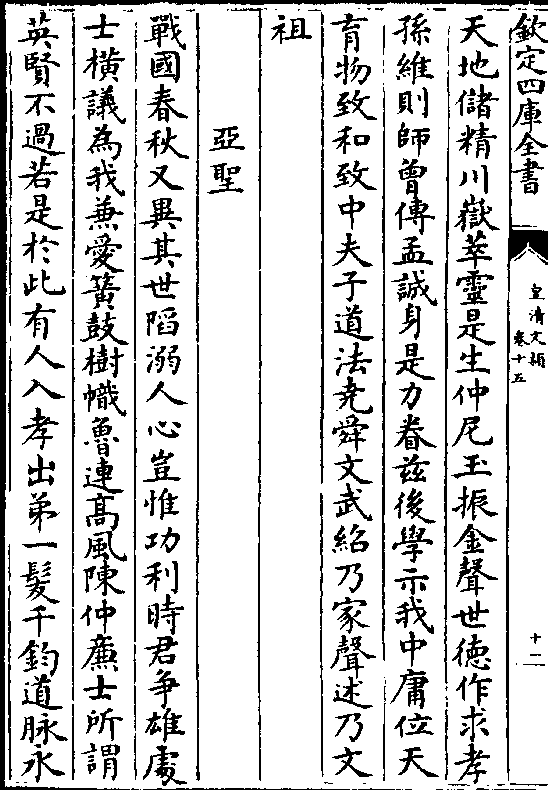 欽定四庫全書
皇清文穎
卷十五
十二
天地儲精川嶽萃靈是生仲尼玉振金聲世德作求孝
孫維則師曾傳孟誠身是力眷茲後學示我中庸位天
育物致和致中夫子道法堯舜文武紹乃家聲述乃文
祖
亞聖
戰國春秋又異其世陷溺人心豈惟功利時君爭雄處
士橫議為我兼愛簧鼓樹幟魯連高風陳仲廉士所謂
英賢不過若是於此有人入孝出弟一髮千鈞道脉永